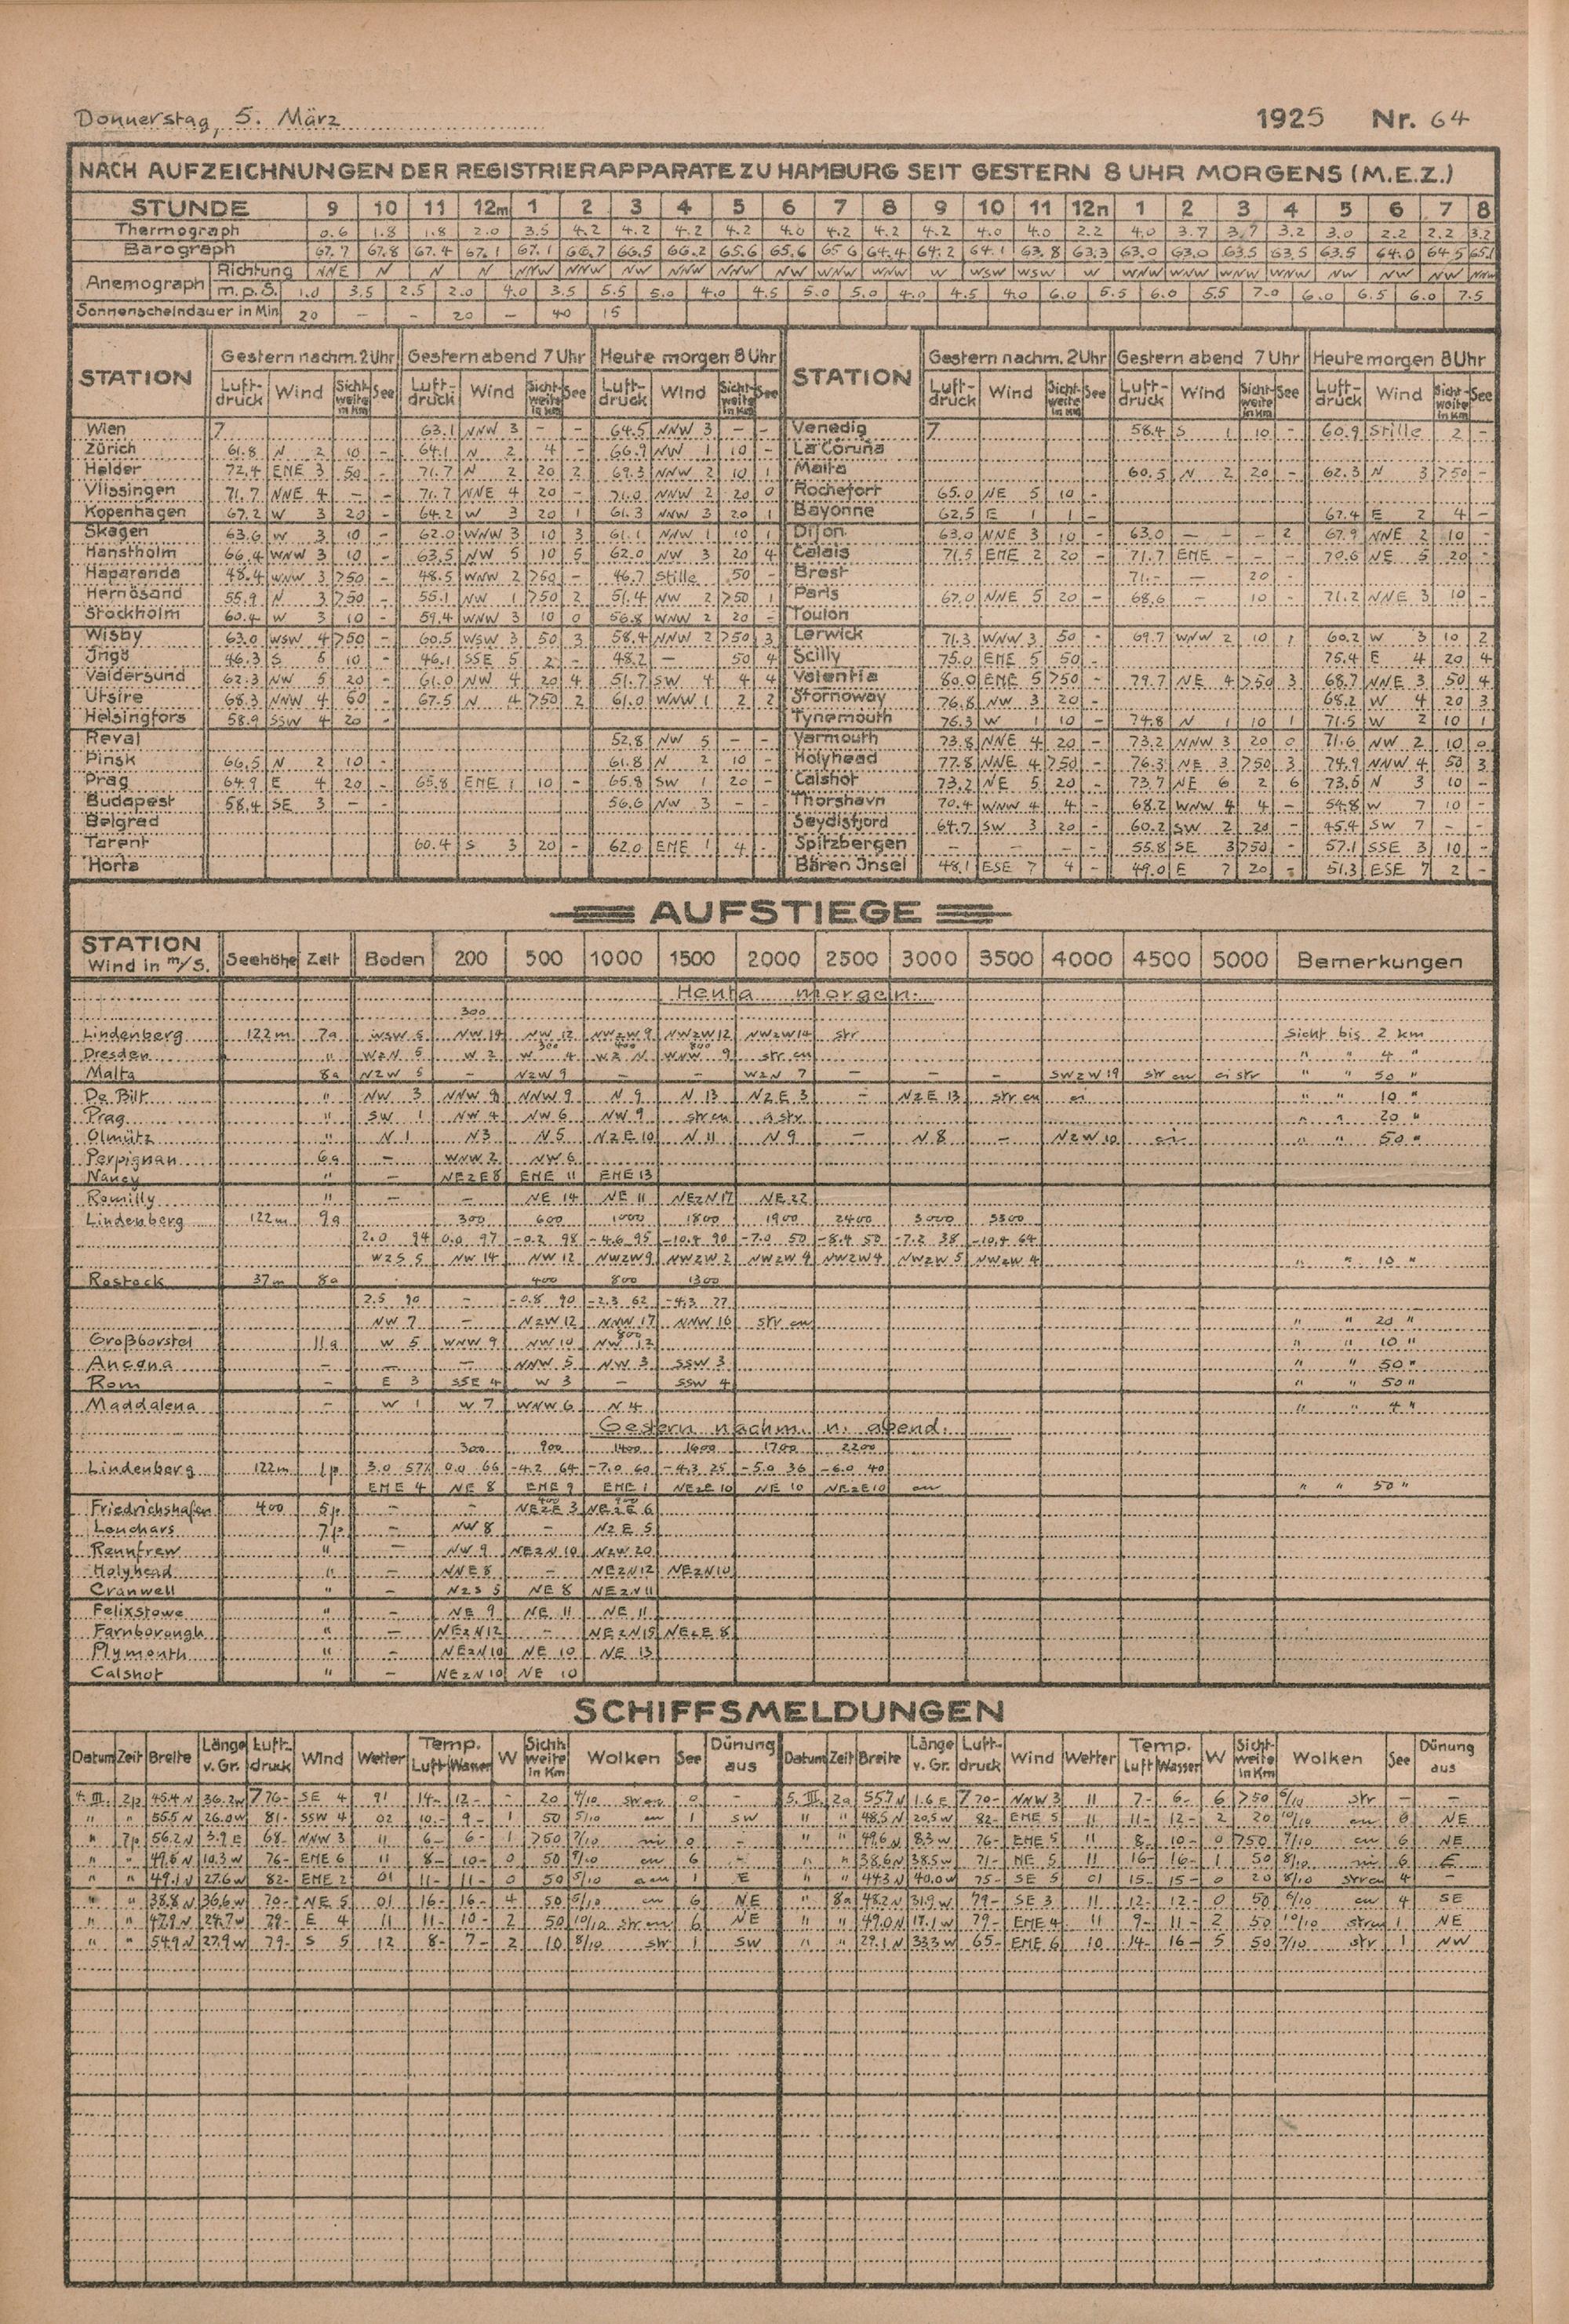 Donnerstag, 5. März 1925 Nr. 64
NACH AUFZEICHNUNGEN DER REGISTRIERAPPARATE ZU HAMBURG SEIT GESTERN 8 UHR MORGENS (M.E.Z.)
STUNDE 9 10 11 12m 1 2 3 4 5 6 7 8 9 10 11 12n 1 2 3 4 5 6 7 8
Thermograph 0.6 1.8 1.8 2.0 3.5 4.2 4.2 4.2 4.2 4.0 4.2 4.2 4.2 4.0 4.0 2.2 4.0 3.7 3.7 3.2 3.0 2.2 2.2 3.2
Barograph 67.7 67.8 67.4 67.1 67.1 66.7 66.5 66.2 65.6 65.6 65.6 64.4 64.2 64.1 63.8 63.3 63.0 63.0 63.5 63.5 63.5 64.0 64.5 65.1
Anemograph Richtung NNE N N N NNW NNW NW NNW NNW NW WNW WNW W WSW WSW W WNW WNW WNW WNW NW NW NW NNW
m.p.S. 1.0 3.5 2.5 2.0 4.0 3.5 5.5 5.0 4.0 4.5 5.0 5.0 4.0 4.5 4.0 6.0 5.5 6.0 5.5 7.0 6.0 6.5 6.0 7.5
Sonnenscheindauer in Min 20 - - 20 - 40 15
STATION Gestern nachm. 2 Uhr Gestern abend 7 Uhr Heute morgen 8 Uhr STATION Gestern nachm. 2 Uhr Gestern abend 7 Uhr Heute morgen 8 Uhr
Luftdruck Wind Sichtweite in Km See Luftdruck Wind Sichtweite in Km See Luftdruck Wind Sichtweite in Km See Luftdruck Wind Sichtweite in Km See Luftdruck Wind Sichtweite in Km See Luftdruck Wind Sichtweite in Km See
Wien 7 63.1 NNW 3 - - 64.5 NNW 3 - - Venedig 7 58.4 S 1 10 - 60.9 Stille 2 -
Zürich 61.8 N 2 10 - 64.1 N 2 4 - 66.9 NW 1 10 - La Coruña
Helder 72.4 ENE 3 50 - 71.7 N 2 20 2 69.3 NNW 2 10 1 Malta 60.5 N 2 20 - 62.3 N 3 >50 -
Vlissingen 71.7 NNE 4 - - 71.7 NNE 4 20 - 71.0 NNW 2 20 0 Rochefort 65.0 NE 5 10 -
Kopenhagen 67.2 W 3 20 - 64.2 W 3 20 1 61.3 NNW 3 20 1 Bayonne 62.5 E 1 1 - 67.4 E 2 4 -
Skagen 63.6 W 3 10 - 62.0 WNW 3 10 3 61.1 NNW 1 10 1 Dijon 63.0 NNE 3 10 - 63.0 - - 2 67.9 NNE 2 10 -
Hanstholm 66.4 WNW 3 10 - 63.5 NW 5 10 5 62.0 NW 3 20 4 Calais 71.5 ENE 2 20 - 71.7 ENE - - - 70.6 NE 5 20 -
Haparanda 48.4 WNW 3 >50 - 48.5 WNW 2 >50 - 46.7 Stille 50 - Brest 71.- - 20 -
Hernösand 55.9 N 3 >50 - 55.1 NW 1 >50 2 51.4 NW 2 >50 1 Paris 67.0 NNE 5 20 - 68.6 - 10 - 71.2 NNE 3 10 -
Stockholm 60.4 W 3 10 - 59.4 WNW 3 10 0 56.8 WNW 2 20 - Toulon
Wisby 63.0 WSW 4 >50 - 60.5 WSW 3 50 3 58.4 NNW 2 >50 3 Lerwick 71.3 WNW 3 50 - 69.7 WNW 2 10 1 60.2 W 3 10 2
Ingö 46.3 S 5 10 - 46.1 SSE 5 2 - 48.2 - 50 4 Scilly 75.0 ENE 5 50 - 75.4 E 4 20 4
Valdersund 62.3 NW 5 20 - 61.0 NW 4 20 4 51.7 SW 4 4 4 Valentia 80.0 ENE 5 >50 - 79.7 NE 4 >50 3 68.7 NNE 3 50 4
Utsire 68.3 NNW 4 50 - 67.5 N 4 >50 2 61.0 WNW 1 2 2 Stornoway 76.8 NW 3 20 - 68.2 W 4 20 3
Helsingfors 58.9 SSW 4 20 - Tynemouth 76.3 W 1 10 - 74.8 N 1 10 1 71.5 W 2 10 1
Reval 52.8 NW 5 - - Yarmouth 73.8 NNE 4 20 - 73.2 NNW 3 20 0 71.6 NW 2 10 0
Pinsk 66.5 N 2 10 - 61.8 N 2 10 - Holyhead 77.8 NNE 4 >50 - 76.3 NE 3 >50 3 74.9 NNW 4 50 3
Prag 64.9 E 4 20 - 65.8 ENE 1 10 - 65.8 SW 1 20 - Calshot 73.2 NE 5 20 - 73.7 NE 6 2 6 73.6 N 3 10 -
Budapest 58.4 SE 3 - - 56.6 NW 3 - - Thorshavn 70.4 WNW 4 4 - 68.2 WNW 4 4 - 54.8 W 7 10 -
Belgrad Seydisfjord 64.7 SW 3 20 - 60.2 SW 2 20 - 45.4 SW 7 - -
Tarent 60.4 S 3 20 - 62.0 ENE 1 4 - Spitzbergen - - - - 55.8 SE 3 >50 - 57.1 SSE 3 10 -
Horta Bären Insel 48.1 ESE 7 4 - 49.0 E 7 20 - 51.3 ESE 7 2 -
AUFSTIEGE
STATION Wind in m/S. Seehöhe Zeit Boden 200 500 1000 1500 2000 2500 3000 3500 4000 4500 5000 Bemerkungen
Heute morgen.
300
Lindenberg 122m 7a WSW 5 NW 14 NW 12 NWzW 9 NWzW 12 NWzW 14 str Sicht bis 2 km
300 400 800
Dresden " WzN 5 W 2 W 4 WzN WNW 9 str cu " " 4 "
Malta 8a NzW 5 - NzW 9 - - WzN 7 - - - SWzW 19 str cu ci str " " 50 "
De Bilt " NW 3 NNW 9 NNW 9 N 9 N 13 NzE 3 - NzE 13 str cu ci " " 10 "
Prag " SW 1 NW 4 NW 6 NW 9 str cu a str " " 20 "
Olmütz " N 1 N 3 N 5 NzE 10 N 11 N 9 - N 8 - NzW 10 ci " " 50 "
Perpignan 6a - WNW 2 NW 6
Nancy " - NEzE 8 ENE 11 ENE 13
Romilly " - - NE 14 NE 11 NEzN 17 NE 22
Lindenberg 122m 9a 300 600 1000 1800 1900 2400 3000 3300
2.0 94 0.0 97 -0.2 98 -4.6 95 -10.4 90 -7.0 50 -8.4 50 -7.2 38 -10.4 64
WzS 5 NW 14 NW 12 NWzW 9 NWzW 2 NWzW 9 NWzW 4 NWzW 5 NWzW 4 " " 10 "
Rostock 37m 8a 400 800 1300
2.5 90 - -0.8 90 -2.3 62 -4.3 77
NW 7 - NzW 12 NNW 17 NNW 16 str cu " " 20 "
800
Großborstel 11a W 5 WNW 9 NW 10 NW 12 " " 10 "
Ancona - - - NNW 5 NW 3 SSW 3 " " 50 "
Rom - E 3 SSE 4 W 3 - SSW 4 " " 50 "
Maddalena - W 1 W 7 WNW 6 N 4 " " 4 "
Gestern nachm. u. abend.
300 900 1400 1600 1700 2200
Lindenberg 122m 1p 3.0 57% 0.0 66 -4.2 64 -7.0 60 -4.3 25 -5.0 36 -6.0 40
ENE 4 NE 8 ENE 9 ENE 1 NEzE 10 NE 10 NEzE 10 cu " " 50 "
Friedrichshafen 400 5p - - NEzE 3 NEzE 6
Leuchars 7p - NW 8 - NzE 5
Rennfrew " - NW 9 NEzN 10 NzW 20
Holyhead " - NNE 8 - NEzN 12 NEzN 10
Cranwell " - NzS 5 NE 8 NEzN 11
Felixstowe " - NE 9 NE 11 NE 11
Farnborough " - NEzN 12 - NEzN 15 NEzE 8
Plymouth " - NEzN 10 NE 10 NE 13
Calshot " - NEzN 10 NE 10
SCHIFFSMELDUNGEN
Datum Zeit Breite Länge v. Gr. Luftdruck Wind Wetter Temp. Luft Wasser W Sichtweite in Km Wolken See Dünung aus Datum Zeit Breite Länge v. Gr. Luftdruck Wind Wetter Temp. Luft Wasser W Sichtweite in Km Wolken See Dünung aus
4. III. 2p 45.4 N 36.2 W 776- SE 4 91 14- 12- - 20 4/10 str cu 0 - 5. III. 2a 55.7 N 1.6 E 770- NNW 3 11 7- 6- 6 >50 6/10 str - -
" " 55.5 N 26.0 W 81- SSW 4 02 10- 9- 1 50 5/10 cu 1 SW " " 48.5 N 20.5 W 82- ENE 5 11 11- 12- 2 20 10/10 cu 6 NE
" 7p 56.2 N 3.9 E 68- NNW 3 11 6- 6- 1 >50 7/10 ni 0 - " " 49.6 N 8.3 W 76- ENE 5 11 8- 10- 0 >50 7/10 cu 6 NE
" " 49.8 N 10.3 W 76- ENE 6 11 8- 10- 0 50 9/10 cu 6 - " " 38.6 N 38.5 W 71- NE 5 11 16- 16- 1 50 8/10 ni 6 E
" " 49.1 N 27.6 W 82- ENE 2 01 11- 11- 0 50 5/10 a cu 1 E " " 44.3 N 40.0 W 75- SE 5 01 15- 15- 0 20 8/10 str cu 4 -
" " 38.8 N 36.6 W 70- NE 5 01 16- 16- 4 50 5/10 cu 6 NE " 8a 48.2 N 31.9 W 79- SE 3 11 12- 12- 0 50 6/10 cu 4 SE
" " 47.9 N 24.7 W 79- E 4 11 11- 10- 2 50 10/10 str cu 6 NE " " 49.0 N 17.1 W 79- ENE 4 11 9- 11- 2 50 10/10 str cu 1 NE
" " 54.9 N 27.9 W 79- S 5 12 8- 7- 2 10 8/10 str 1 SW " " 29.1 N 33.3 W 65- ENE 6 10 14- 16- 5 50 7/10 str 1 NW